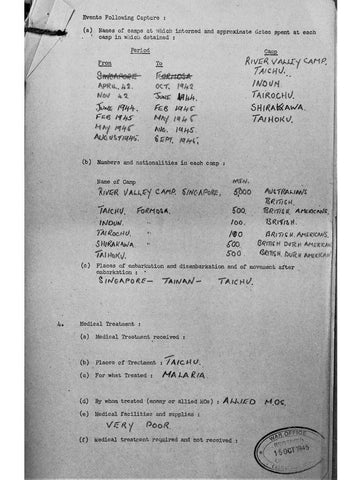 Events Following Capture :
(a) Names of camps at which interned and approximate dates spent at each
camp in which detained :
Period Camp
From To RIVER VALLEY CAMP.
SINGAPORE FORMOSA TAICHU.
APRIL. 42. OCT, 1942 INDUN.
NOV 42 JUNE 1944. TAIROCHU.
JUNE 1944. FEB 1945 SHIRAKAWA.
FEB 1945 MAY 1945 TAIHOKU.
MAY 1945 AUG. 1945.
AUGUST 1945. SEPT. 1945.
(b) Numbers and nationalities in each camp :
Name of Camp MEN.
RIVER VALLEY CAMP. SINGAPORE. 5,000 AUSTRALIANS
BRITISH.
TAICHU. FORMOSA. 500. BRITISH AMERICANS.
INDUN. " 100. BRITISH.
TAIROCHU. " 100 BRITISH. AMERICANS.
SHIRAKAWA " 500 BRITISH DUTCH AMERICANS
TAIHOKU. " 500 BRITISH DUTCH AMERICANS
(c) Places of embarkation and disembarkation and of movement after
embarkation :
SINGAPORE — TAINAN — TAICHU.
4. Medical Treatment :
(a) Medical Treatment received :
(b) Places of Treatment : TAICHU.
(c) For what Treated : MALARIA
(d) By whom treated (enemy or Allied MOs) : ALLIED M.OS.
(e) Medical facilities and supplies :
VERY POOR
(f) Medical treatment required and not received :
WAR OFFICE
15 OCT 1945